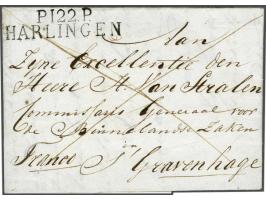 P122P
HARLINGEN
Aan
Zyne Excellentie den
Heere H. Van Stralen
Commissaris Generaal voor
de Binnelandse Zaken
in
Franco S'Gravenhage